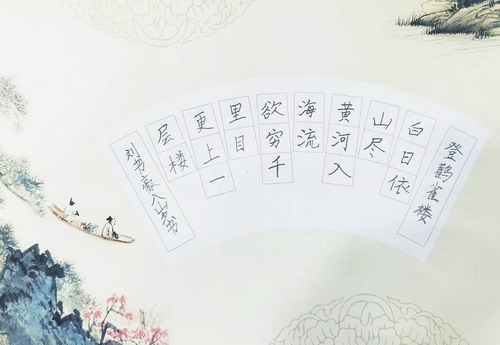 登鹳雀楼
白日依
山尽
黄河入
海流
欲穷千
里目
更上一
层楼